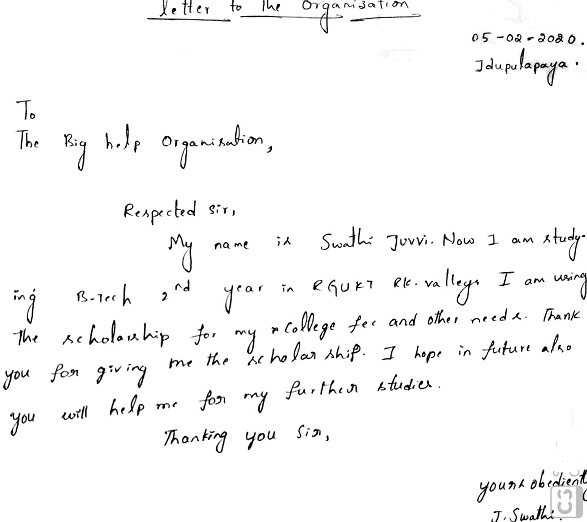 letter to the Organisation
05-02-2020.
Idupulapaya.
To
The Big help Organisation,
Respected Sir,
My name is Swathi Juvvi. Now I am study-
ing B-Tech 2nd year in RGUKT RK. valleys I am using
The scholarship for my college fee and other needs. Thank
you for giving me the scholarship. I hope in future also
you will help me for my further studies.
Thanking you Sir,
yours obedient
J. Swathi.
CS